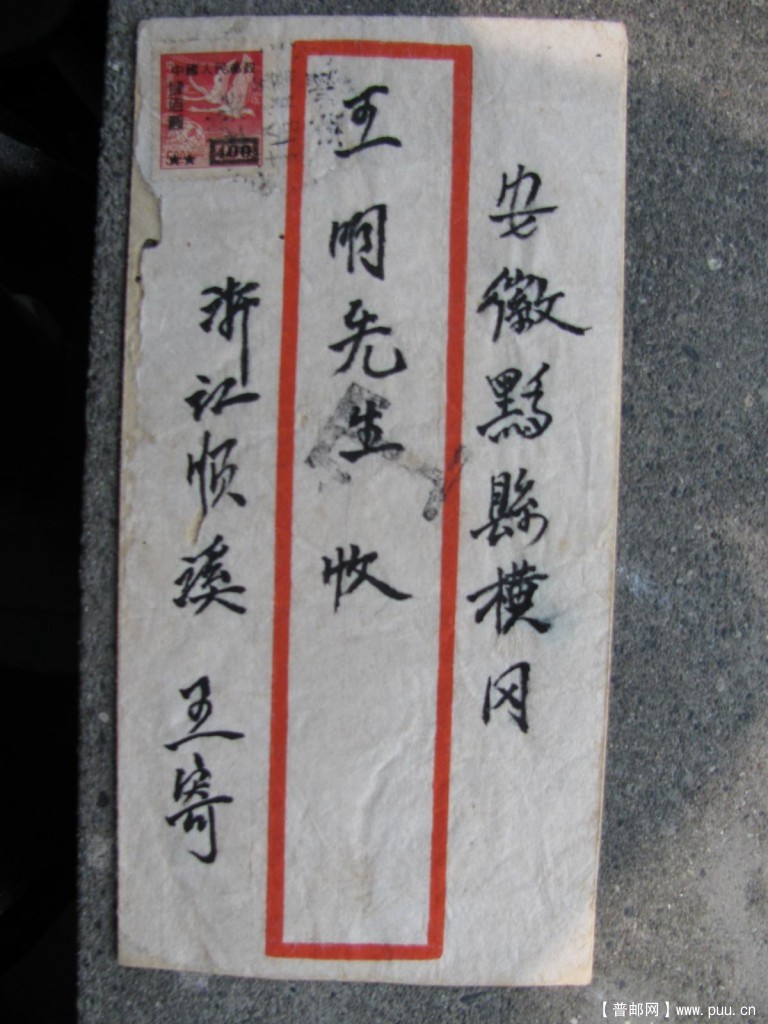 安徽黟縣橫冈
王明先生 收
浙江顺溪 王寄
中國人民郵政
400
【普邮网】www.puu.cn